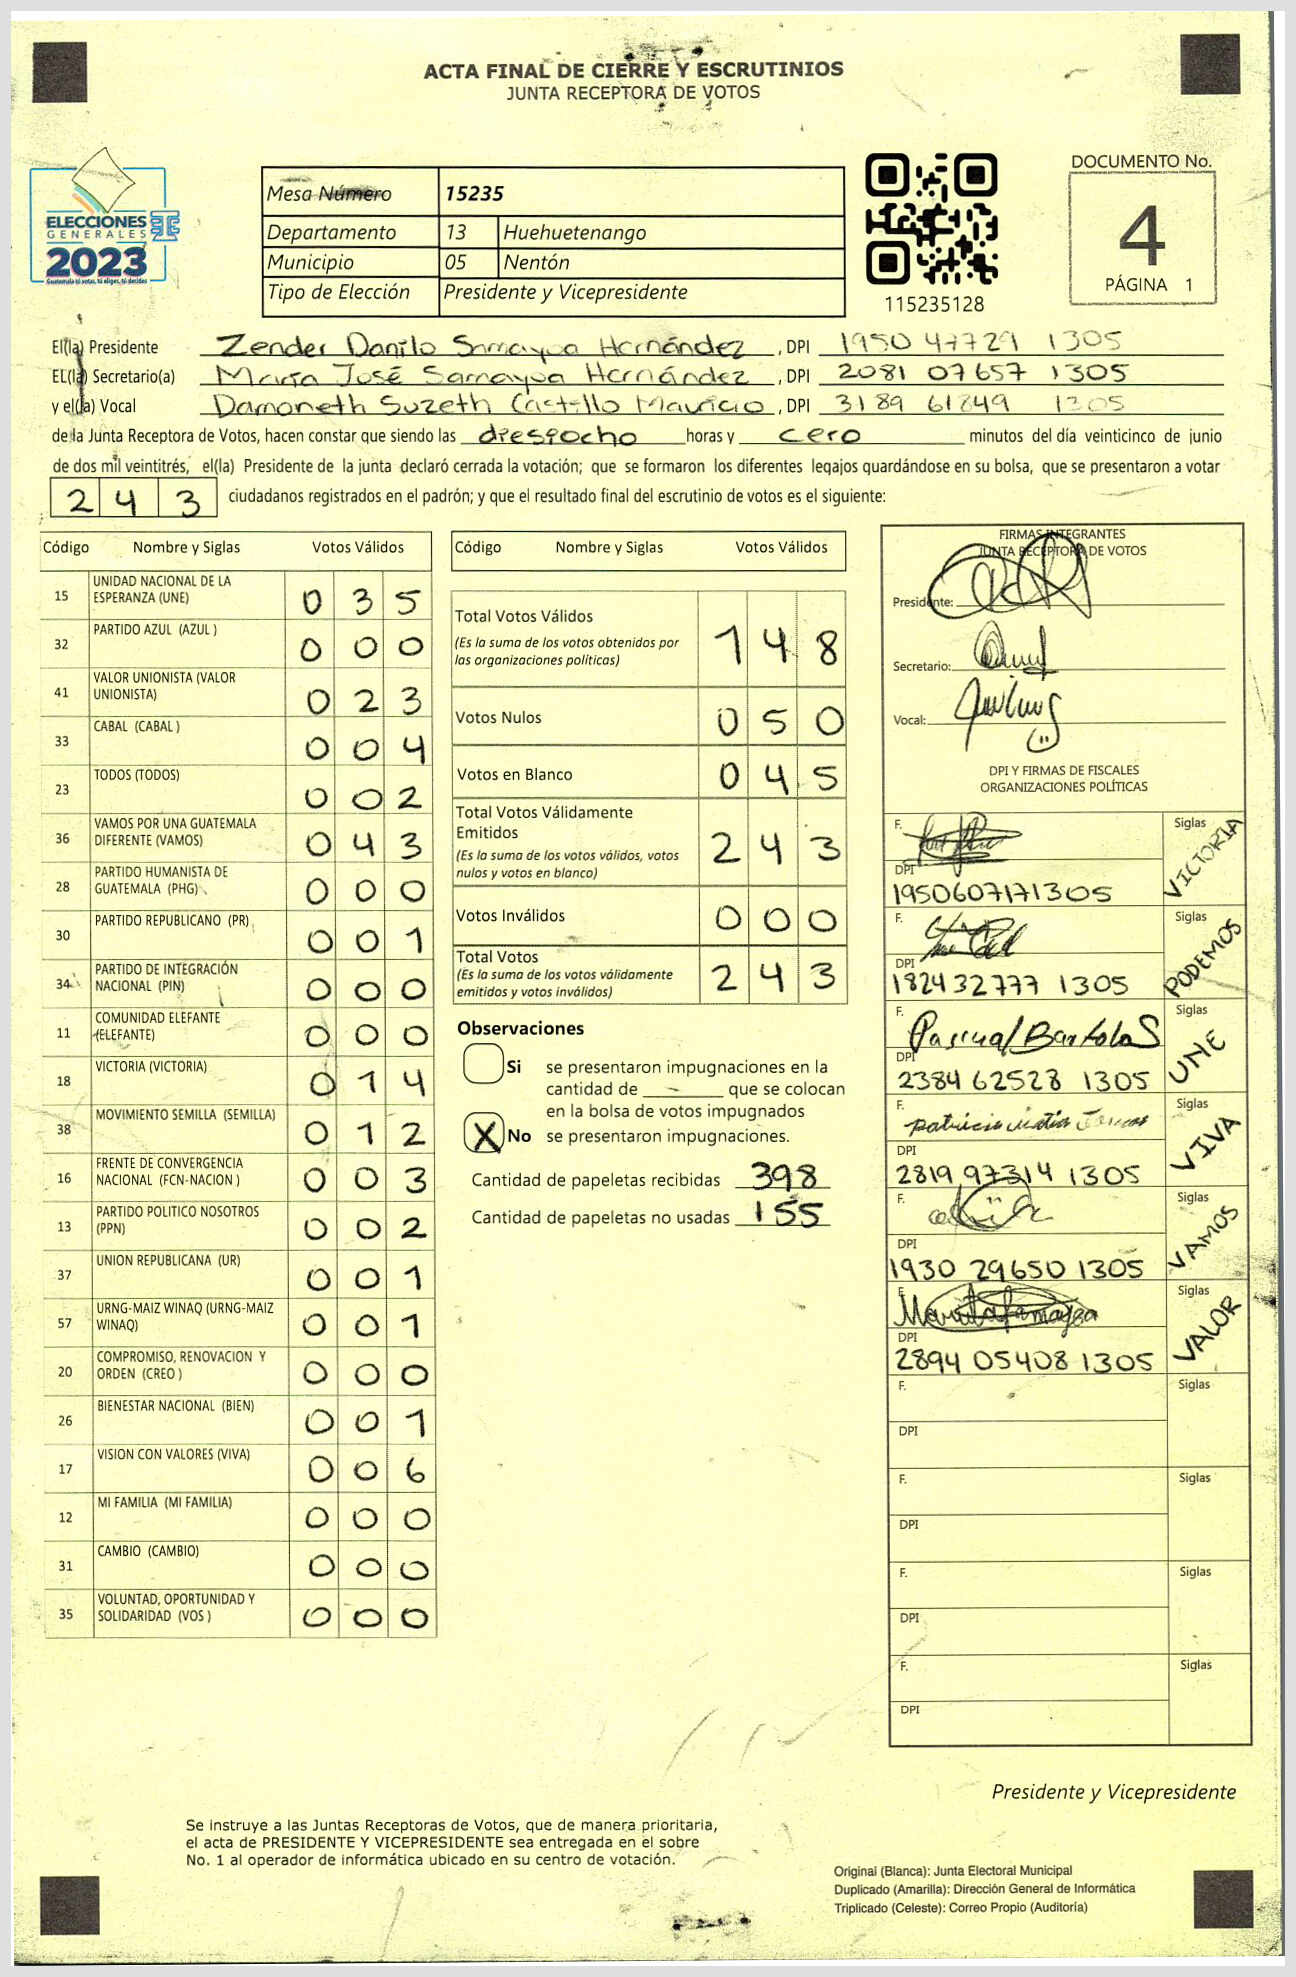 ACTA FINAL DE CIERRE Y ESCRUTINIOS
JUNTA RECEPTORA DE VOTOS
ELECCIONES
GENERALES
2023
Guatemala tú votas, tú eliges, tú decides
Mesa Número 15235
Departamento 13 Huehuetenango
Municipio 05 Nentón
Tipo de Elección Presidente y Vicepresidente
115235128
DOCUMENTO No.
4
PÁGINA 1
El(la) Presidente Zender Danilo Samayoa Hernández, DPI 1950 47729 1305
EL(la) Secretario(a) María José Samayoa Hernández, DPI 2081 07657 1305
y el(la) Vocal Damoneth Suzeth Castillo Mauricio, DPI 3189 61849 1305
de la Junta Receptora de Votos, hacen constar que siendo las diesiocho horas y cero minutos del día veinticinco de junio
de dos mil veintitrés, el(la) Presidente de la junta declaró cerrada la votación; que se formaron los diferentes legajos guardándose en su bolsa, que se presentaron a votar
2 4 3 ciudadanos registrados en el padrón; y que el resultado final del escrutinio de votos es el siguiente:
Código Nombre y Siglas Votos Válidos
15 UNIDAD NACIONAL DE LA ESPERANZA (UNE) 0 3 5
32 PARTIDO AZUL (AZUL ) 0 0 0
41 VALOR UNIONISTA (VALOR UNIONISTA) 0 2 3
33 CABAL (CABAL ) 0 0 4
23 TODOS (TODOS) 0 0 2
36 VAMOS POR UNA GUATEMALA DIFERENTE (VAMOS) 0 4 3
28 PARTIDO HUMANISTA DE GUATEMALA (PHG) 0 0 0
30 PARTIDO REPUBLICANO (PR) 0 0 1
34 PARTIDO DE INTEGRACIÓN NACIONAL (PIN) 0 0 0
11 COMUNIDAD ELEFANTE (ELEFANTE) 0 0 0
18 VICTORIA (VICTORIA) 0 1 4
38 MOVIMIENTO SEMILLA (SEMILLA) 0 1 2
16 FRENTE DE CONVERGENCIA NACIONAL (FCN-NACION ) 0 0 3
13 PARTIDO POLITICO NOSOTROS (PPN) 0 0 2
37 UNION REPUBLICANA (UR) 0 0 1
57 URNG-MAIZ WINAQ (URNG-MAIZ WINAQ) 0 0 1
20 COMPROMISO, RENOVACION Y ORDEN (CREO ) 0 0 0
26 BIENESTAR NACIONAL (BIEN) 0 0 1
17 VISION CON VALORES (VIVA) 0 0 6
12 MI FAMILIA (MI FAMILIA) 0 0 0
31 CAMBIO (CAMBIO) 0 0 0
35 VOLUNTAD, OPORTUNIDAD Y SOLIDARIDAD (VOS ) 0 0 0
Código Nombre y Siglas Votos Válidos
Total Votos Válidos 1 4 8
(Es la suma de los votos obtenidos por
las organizaciones políticas)
Votos Nulos 0 5 0
Votos en Blanco 0 4 5
Total Votos Válidamente
Emitidos 2 4 3
(Es la suma de los votos válidos, votos
nulos y votos en blanco)
Votos Inválidos 0 0 0
Total Votos 2 4 3
(Es la suma de los votos válidamente
emitidos y votos inválidos)
Observaciones
Si se presentaron impugnaciones en la
cantidad de - que se colocan
en la bolsa de votos impugnados
X No se presentaron impugnaciones.
Cantidad de papeletas recibidas 398
Cantidad de papeletas no usadas 155
FIRMAS INTEGRANTES
JUNTA RECEPTORA DE VOTOS
Presidente:
Secretario:
Vocal:
DPI Y FIRMAS DE FISCALES
ORGANIZACIONES POLÍTICAS
F. Siglas VICTORIA
DPI
195060717 1305
F. Siglas PODEMOS
DPI
182432777 1305
F. Pascual Bartolo S Siglas UNE
DPI
2384 62528 1305
F. Siglas VIVA
DPI
2819 97314 1305
F. Siglas VAMOS
DPI
1930 29650 1305
F. Siglas VALOR
DPI
2894 05408 1305
F. Siglas
DPI
F. Siglas
DPI
F. Siglas
DPI
F. Siglas
DPI
Presidente y Vicepresidente
Se instruye a las Juntas Receptoras de Votos, que de manera prioritaria,
el acta de PRESIDENTE Y VICEPRESIDENTE sea entregada en el sobre
No. 1 al operador de informática ubicado en su centro de votación.
Original (Blanca): Junta Electoral Municipal
Duplicado (Amarilla): Dirección General de Informática
Triplicado (Celeste): Correo Propio (Auditoría)